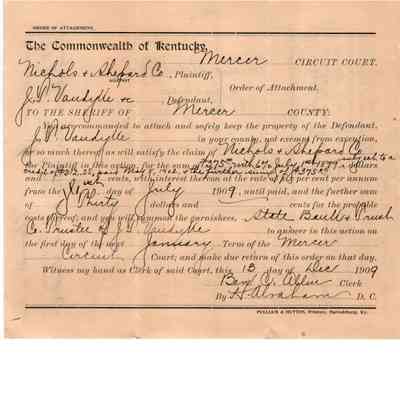 ORDER OF ATTACHMENT.
The Commonwealth of Kentucky,
Mercer CIRCUIT COURT.
Nichols & Shepard Co
AGAINST , Plaintiff,
Order of Attachment.
J. P. Vandylle &c , Defendant,
TO THE SHERIFF OF Mercer COUNTY:
You are commanded to attach and safely keep the property of the Defendant,
J. P. Vandylle in your county, not exempt from execution,
or so much thereof as will satisfy the claim of Nichols & Shepard Co
the Plaintiff in this action, for the sum of $275 with int July 1st 1899 Dollars
credit of $212.22, paid May 8, 1902, & the further sum of $275
and cents, with interest thereon at the rate of per cent per annum
from the 1st day of July 1909, until paid, and the further sum
of Thirty dollars and cents for the probable
costs thereof; and you will summon the garnishees, State Bank & Trust
Co. Trustee of J. P. Vandylle to answer in this action on
the first day of the next January Term of the Mercer
Circuit Court; and make due return of this order on that day.
Witness my hand as Clerk of said Court, this 13 day of Dec 1909
Ben C. Allin Clerk
By H. Abraham D. C.
PULLIAM & HUTTON, Printers, Harrodsburg, Ky.